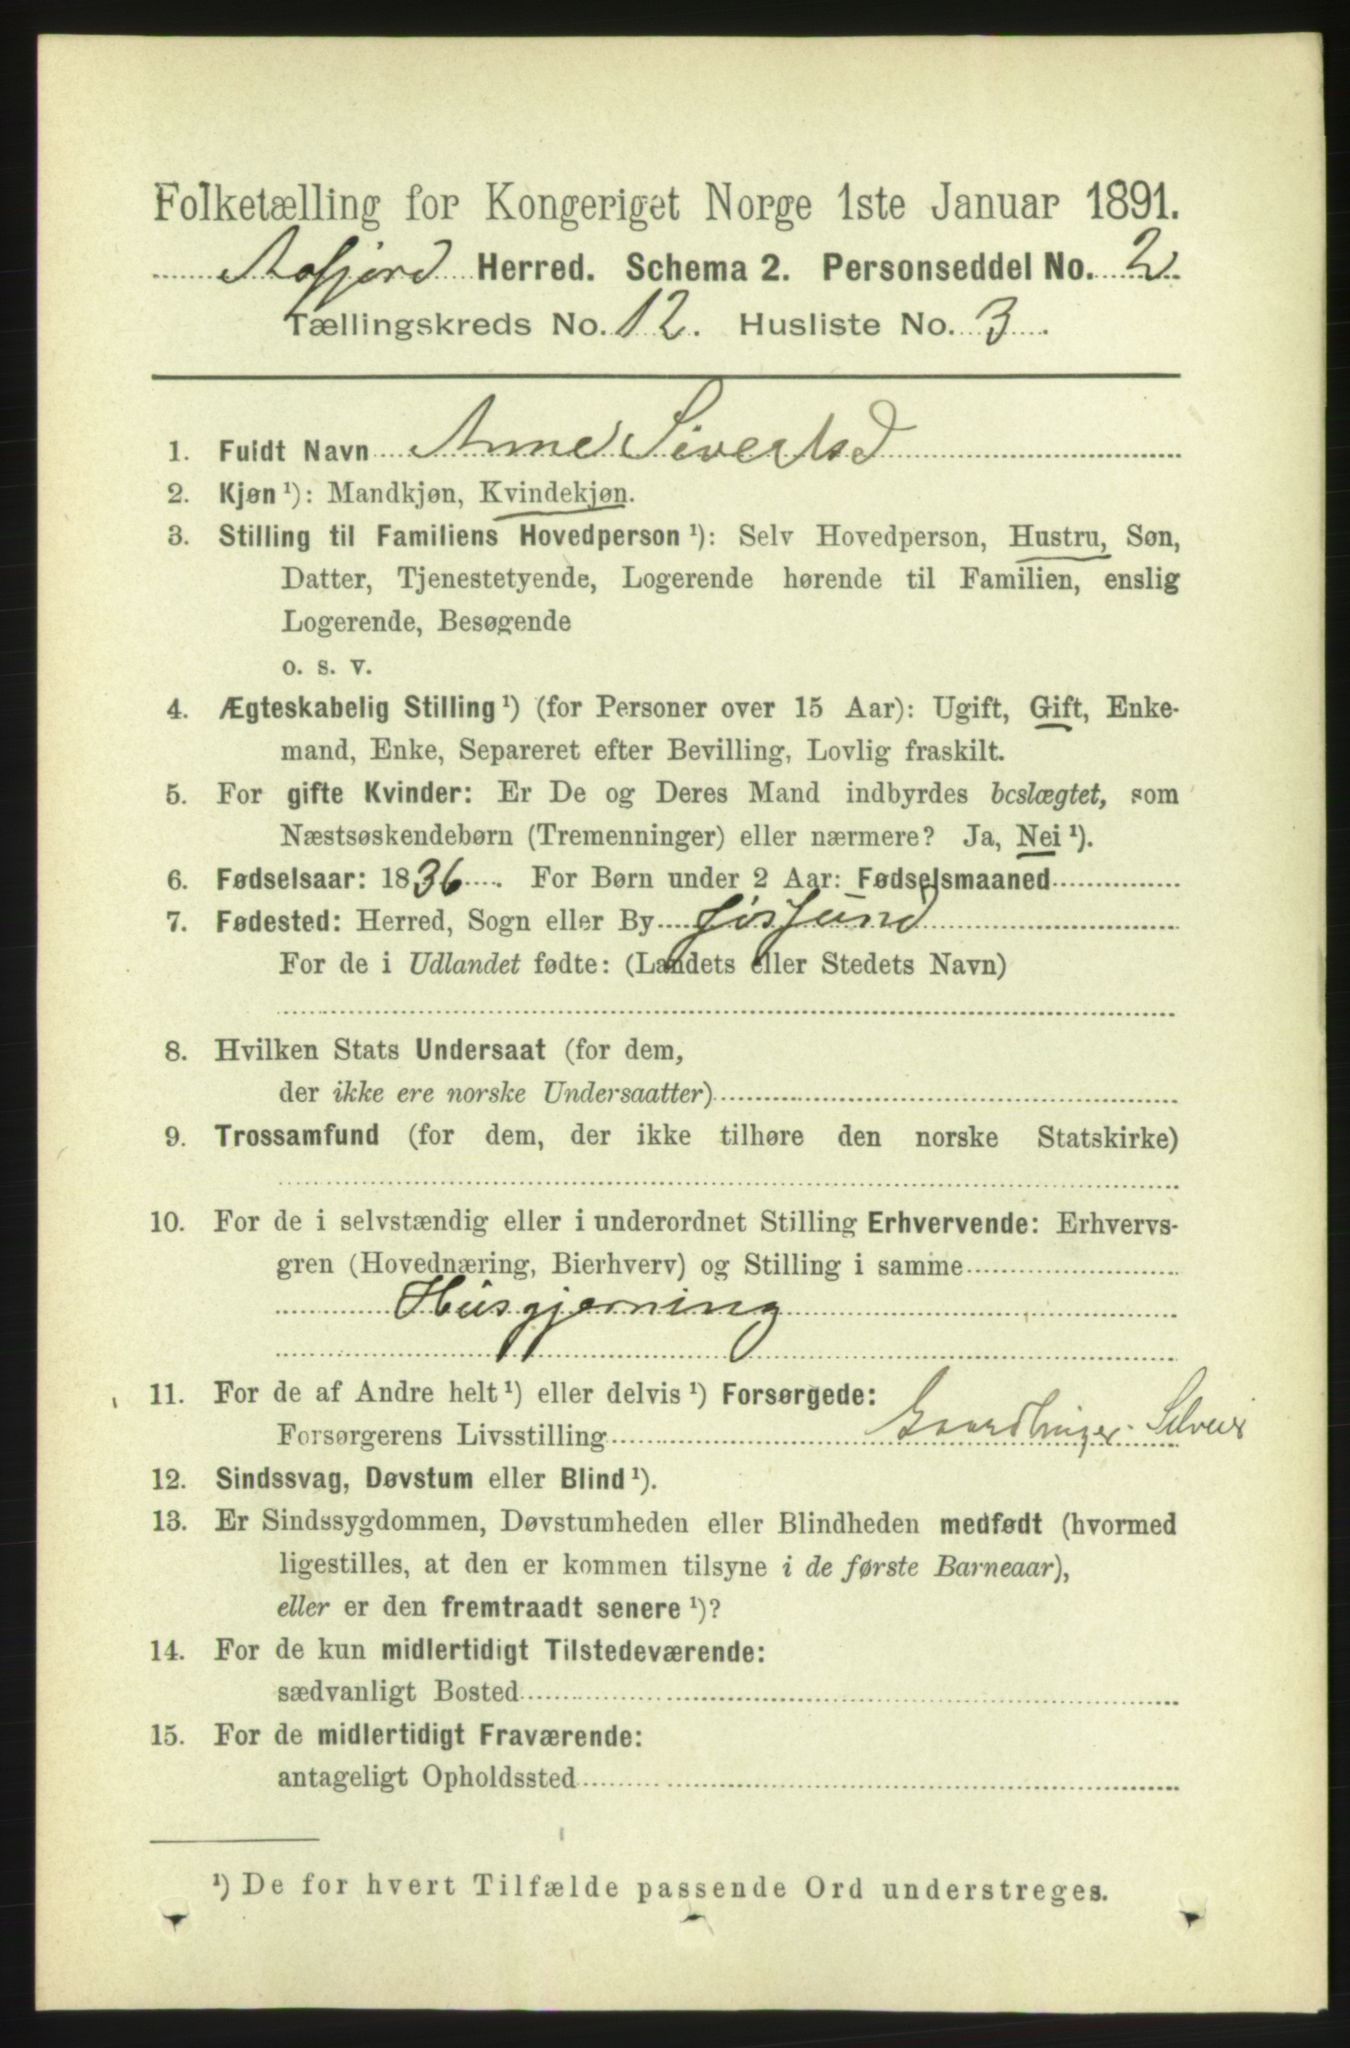 Folketælling for Kongeriget Norge 1ste Januar 1891.
Aafjord Herred. Schema 2. Personseddel No. 2.
Tællingskreds No. 12. Husliste No. 3.
1. Fuldt Navn Anne Sivertsd
2. Kjøn ¹): Mandkjøn, Kvindekjøn.
3. Stilling til Familiens Hovedperson ¹): Selv Hovedperson, Hustru, Søn,
Datter, Tjenestetyende, Logerende hørende til Familien, enslig
Logerende, Besøgende
o. s. v.
4. Ægteskabelig Stilling ¹) (for Personer over 15 Aar): Ugift, Gift, Enke-
mand, Enke, Separeret efter Bevilling, Lovlig fraskilt.
5. For gifte Kvinder: Er De og Deres Mand indbyrdes beslægtet, som
Næstsøskendebørn (Tremenninger) eller nærmere? Ja, Nei ¹).
6. Fødselsaar: 1836. For Børn under 2 Aar: Fødselsmaaned
7. Fødested: Herred, Sogn eller By Jøssund
For de i Udlandet fødte: (Landets eller Stedets Navn)
8. Hvilken Stats Undersaat (for dem,
der ikke ere norske Undersaatter)
9. Trossamfund (for dem, der ikke tilhøre den norske Statskirke)
10. For de i selvstændig eller i underordnet Stilling Erhvervende: Erhvervs-
gren (Hovednæring, Bierhverv) og Stilling i samme
Husgjerning
11. For de af Andre helt ¹) eller delvis ¹) Forsørgede:
Forsørgerens Livsstilling Gaardbruger Selveier
12. Sindssvag, Døvstum eller Blind ¹).
13. Er Sindssygdommen, Døvstumheden eller Blindheden medfødt (hvormed
ligestilles, at den er kommen tilsyne i de første Barneaar),
eller er den fremtraadt senere ¹)?
14. For de kun midlertidigt Tilstedeværende:
sædvanligt Bosted
15. For de midlertidigt Fraværende:
antageligt Opholdssted
¹) De for hvert Tilfælde passende Ord understreges.